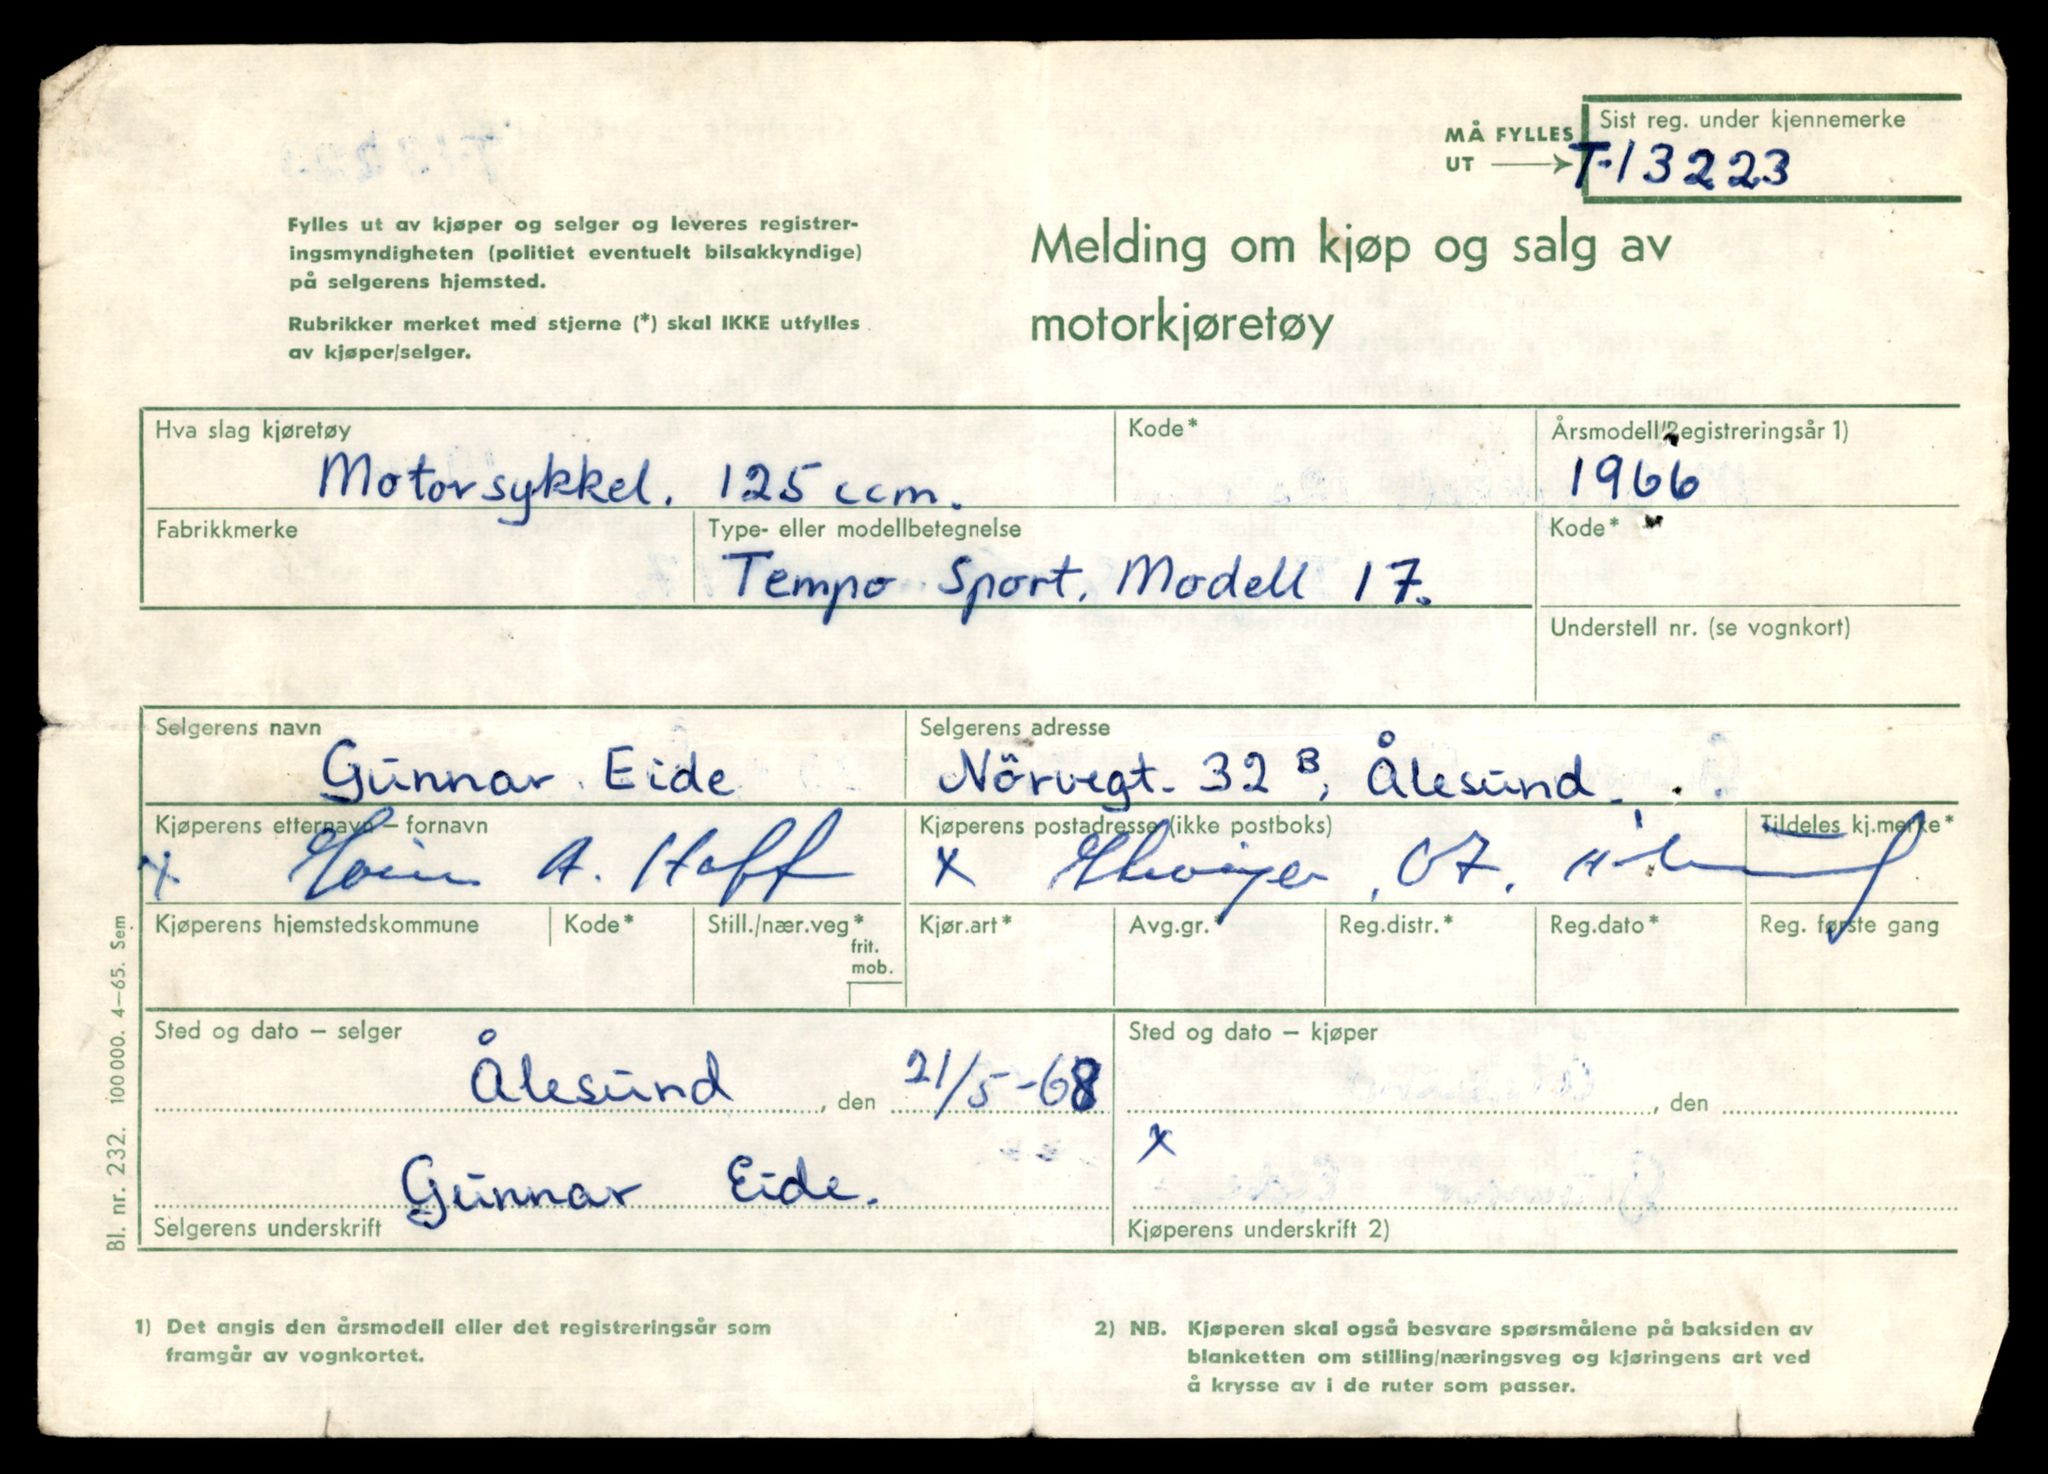 MÅ FYLLES UT
Sist reg. under kjennemerke
T-13223
Fylles ut av kjøper og selger og leveres registrer-
ingsmyndigheten (politiet eventuelt bilsakkyndige)
på selgerens hjemsted.
Rubrikker merket med stjerne (*) skal IKKE utfylles
av kjøper/selger.
Melding om kjøp og salg av
motorkjøretøy
Hva slag kjøretøy
Kode*
Årsmodell/Registreringsår 1)
Motorsykkel. 125 ccm.
1966
Fabrikkmerke
Type- eller modellbetegnelse
Kode*
Tempo Sport. Modell 17.
Understell nr. (se vognkort)
Selgerens navn
Selgerens adresse
Gunnar Eide
Nörvegt. 32 B, Ålesund.
Kjøperens etternavn – fornavn
Kjøperens postadresse (ikke postboks)
Tildeles kj.merke*
x A. Hoff
x
Kjøperens hjemstedskommune
Kode*
Still./nær.veg*
frit.
mob.
Kjør.art*
Avg.gr.*
Reg.distr.*
Reg.dato*
Reg. første gang
Sted og dato – selger
Sted og dato – kjøper
Ålesund, den 21/5-68
, den
Gunnar Eide.
x
Selgerens underskrift
Kjøperens underskrift 2)
Bl. nr. 232. 100 000. 4–65. Sem
1) Det angis den årsmodell eller det registreringsår som
framgår av vognkortet.
2) NB. Kjøperen skal også besvare spørsmålene på baksiden av
blanketten om stilling/næringsveg og kjøringens art ved
å krysse av i de ruter som passer.